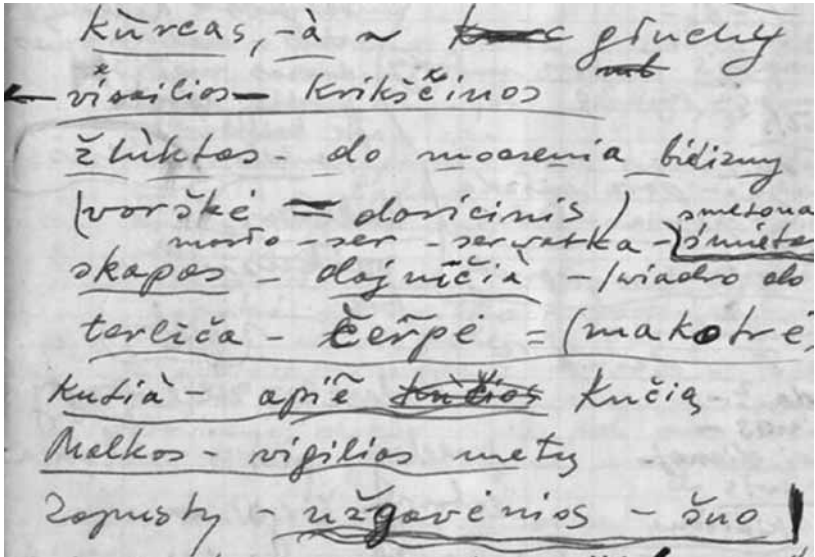 kùrcas, -à ~ głuchy
← vigilios – Krikščinos
žlùktas - do moczenia bielizny
(vorškė = doricinis) smetona
masło - ser - serwatka - śmieta
skapas - dajnīčià - (wiadro do
terlīča - čerpė = (makotrė)
Kutià - apiē Kučią
Malkos - vigilias metų
Zapusty - užgavėnios - šuo